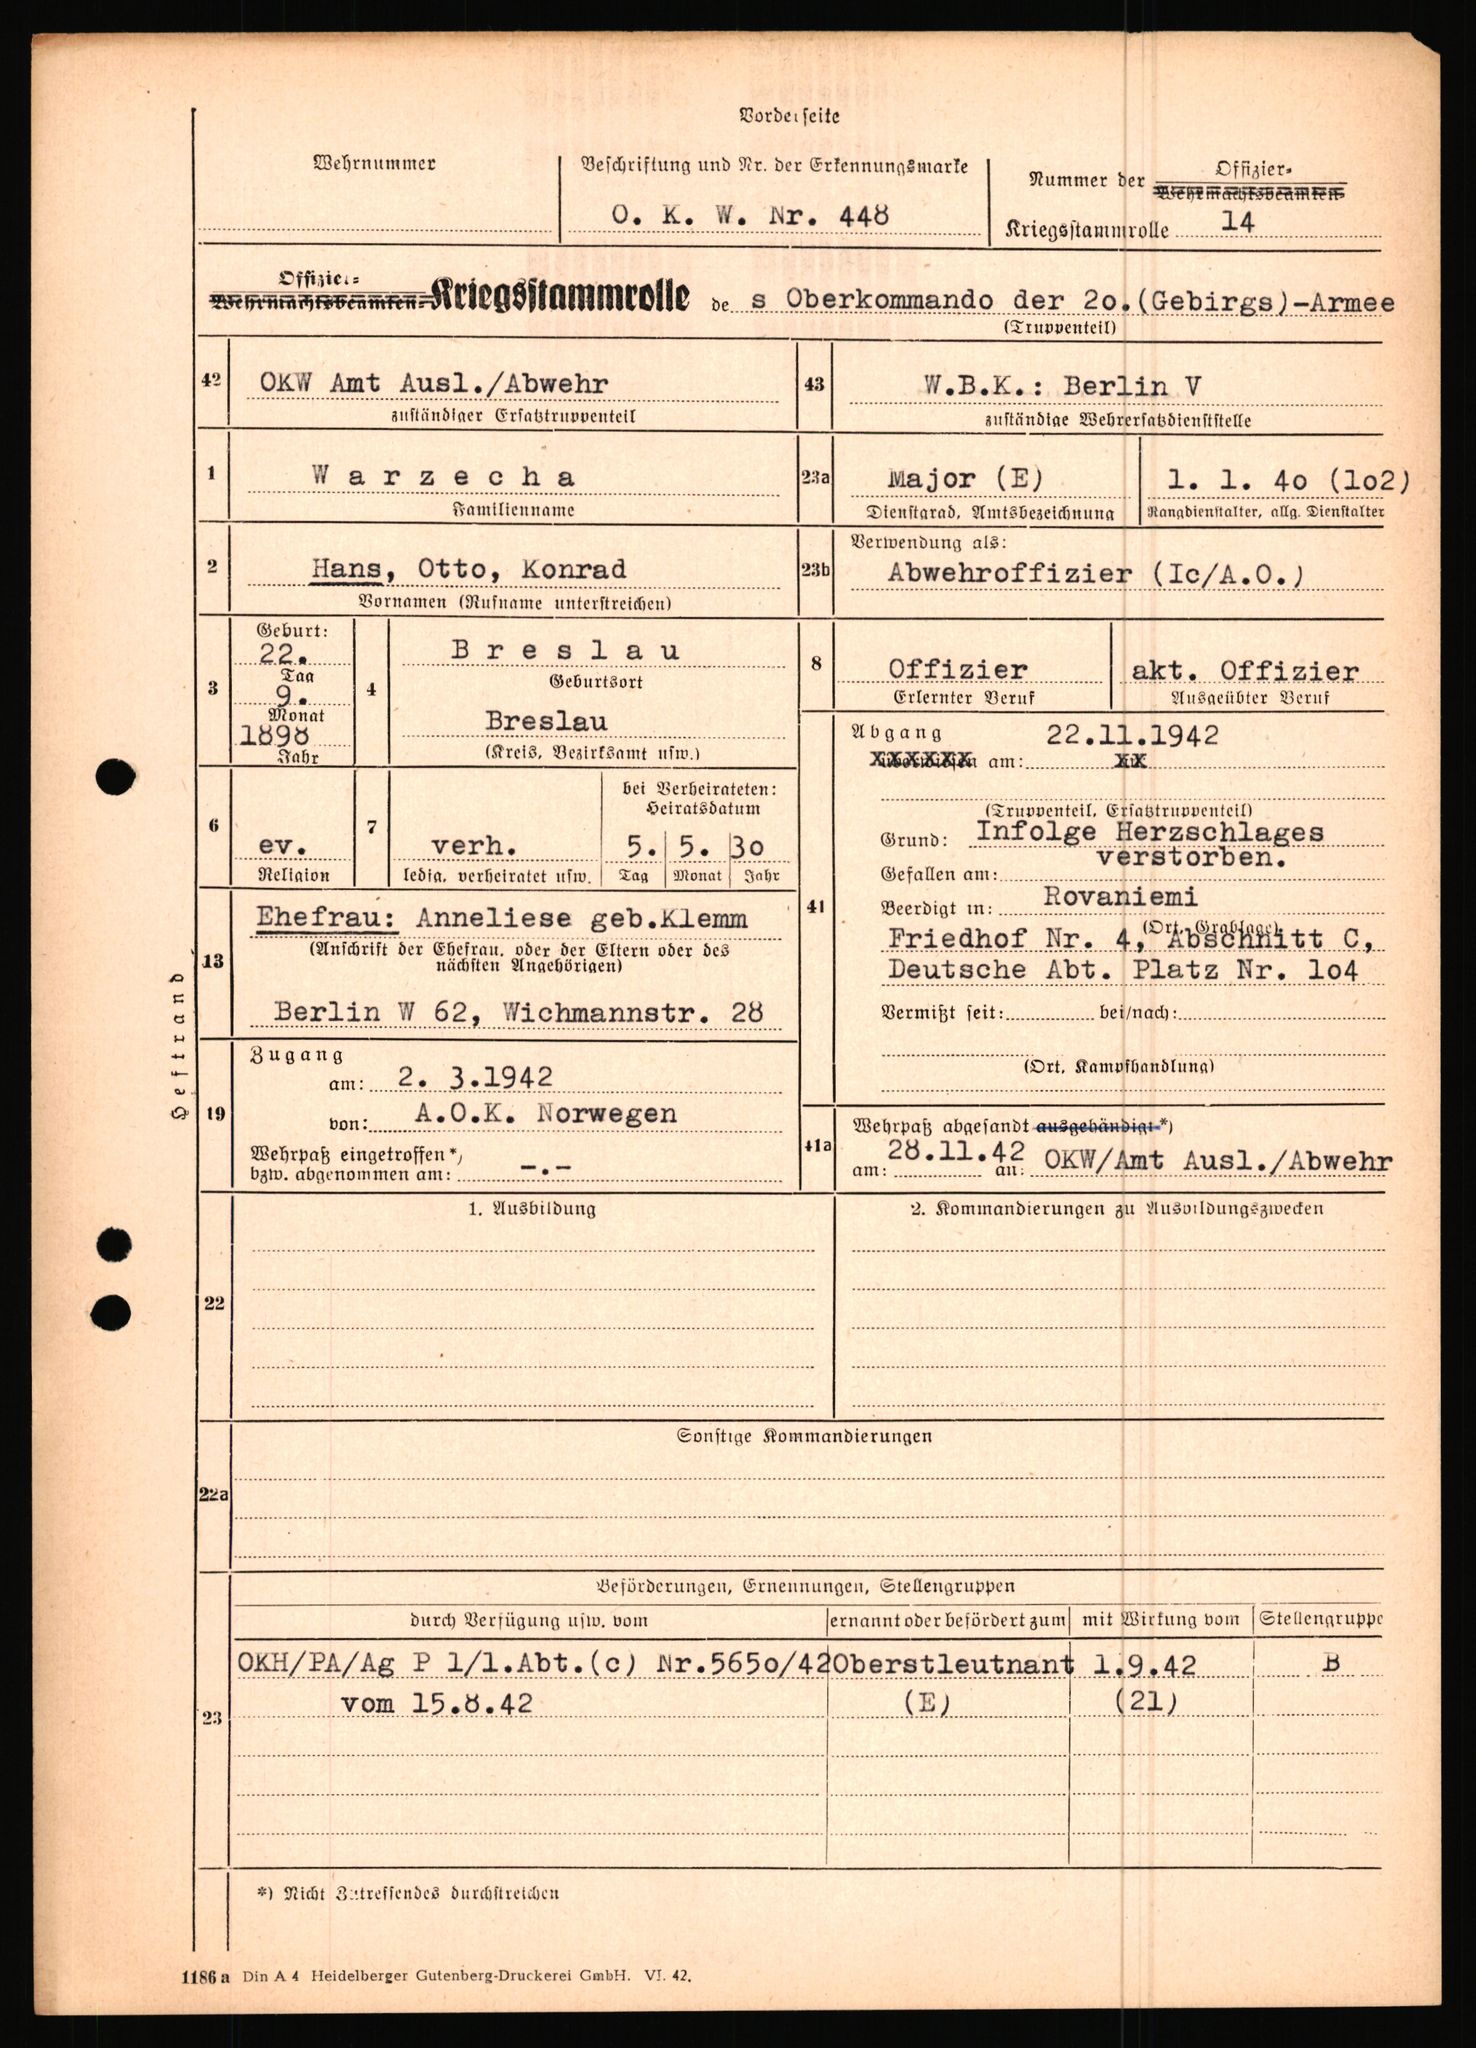 Vorderseite
Wehrnummer
Beschriftung und Nr. der Erkennungsmarke
O. K. W. Nr. 448
Nummer der Offizier-
Wehrmachtsbeamten-
Kriegsstammrolle 14
Offizier-
Wehrmachtsbeamten-Kriegsstammrolle de s Oberkommando der 2o.(Gebirgs)-Armee
(Truppenteil)
42 OKW Amt Ausl./Abwehr
zuständiger Ersatztruppenteil
43 W.B.K.: Berlin V
zuständige Wehrersatzdienststelle
1 W a r z e c h a
Familienname
23a Major (E)
Dienstgrad, Amtsbezeichnung
1. 1. 4o (1o2)
Rangdienstalter, allg. Dienstalter
2 Hans, Otto, Konrad
Vornamen (Rufname unterstreichen)
23b Verwendung als:
Abwehroffizier (Ic/A.O.)
3 Geburt:
22.
Tag
9.
Monat
1898
Jahr
4 B r e s l a u
Geburtsort
Breslau
(Kreis, Bezirksamt usw.)
8 Offizier
Erlernter Beruf
akt. Offizier
Ausgeübter Beruf
6 ev.
Religion
7 verh.
ledig, verheiratet usw.
bei Verheirateten:
Heiratsdatum
5. 5. 3o
Tag Monat Jahr
41 Abgang 22.11.1942
am:
(Truppenteil, Ersatztruppenteil)
Grund: Infolge Herzschlages
verstorben.
Gefallen am:
Beerdigt in: Rovaniemi
(Ort, Grablage)
Friedhof Nr. 4, Abschnitt C,
Deutsche Abt. Platz Nr. 1o4
Vermißt seit: bei/nach:
(Ort, Kampfhandlung)
13 Ehefrau: Anneliese geb.Klemm
(Anschrift der Ehefrau, oder der Eltern oder des
nächsten Angehörigen)
Berlin W 62, Wichmannstr. 28
Heftrand
19 Zugang
am: 2. 3.1942
von: A.O.K. Norwegen
Wehrpaß eingetroffen*)
bzw. abgenommen am: -.-
41a Wehrpaß abgesandt ausgehändigt*)
am: 28.11.42 an: OKW/Amt Ausl./Abwehr
22 1. Ausbildung
2. Kommandierungen zu Ausbildungszwecken
22a Sonstige Kommandierungen
23 Beförderungen, Ernennungen, Stellengruppen
durch Verfügung usw. vom
ernannt oder befördert zum
mit Wirkung vom
Stellengruppe
OKH/PA/Ag P 1/1.Abt.(c) Nr.565o/42 Oberstleutnant 1.9.42 B
vom 15.8.42 (E) (21)
*) Nicht Zutreffendes durchstreichen
1186a Din A 4 Heidelberger Gutenberg-Druckerei GmbH. VI. 42.